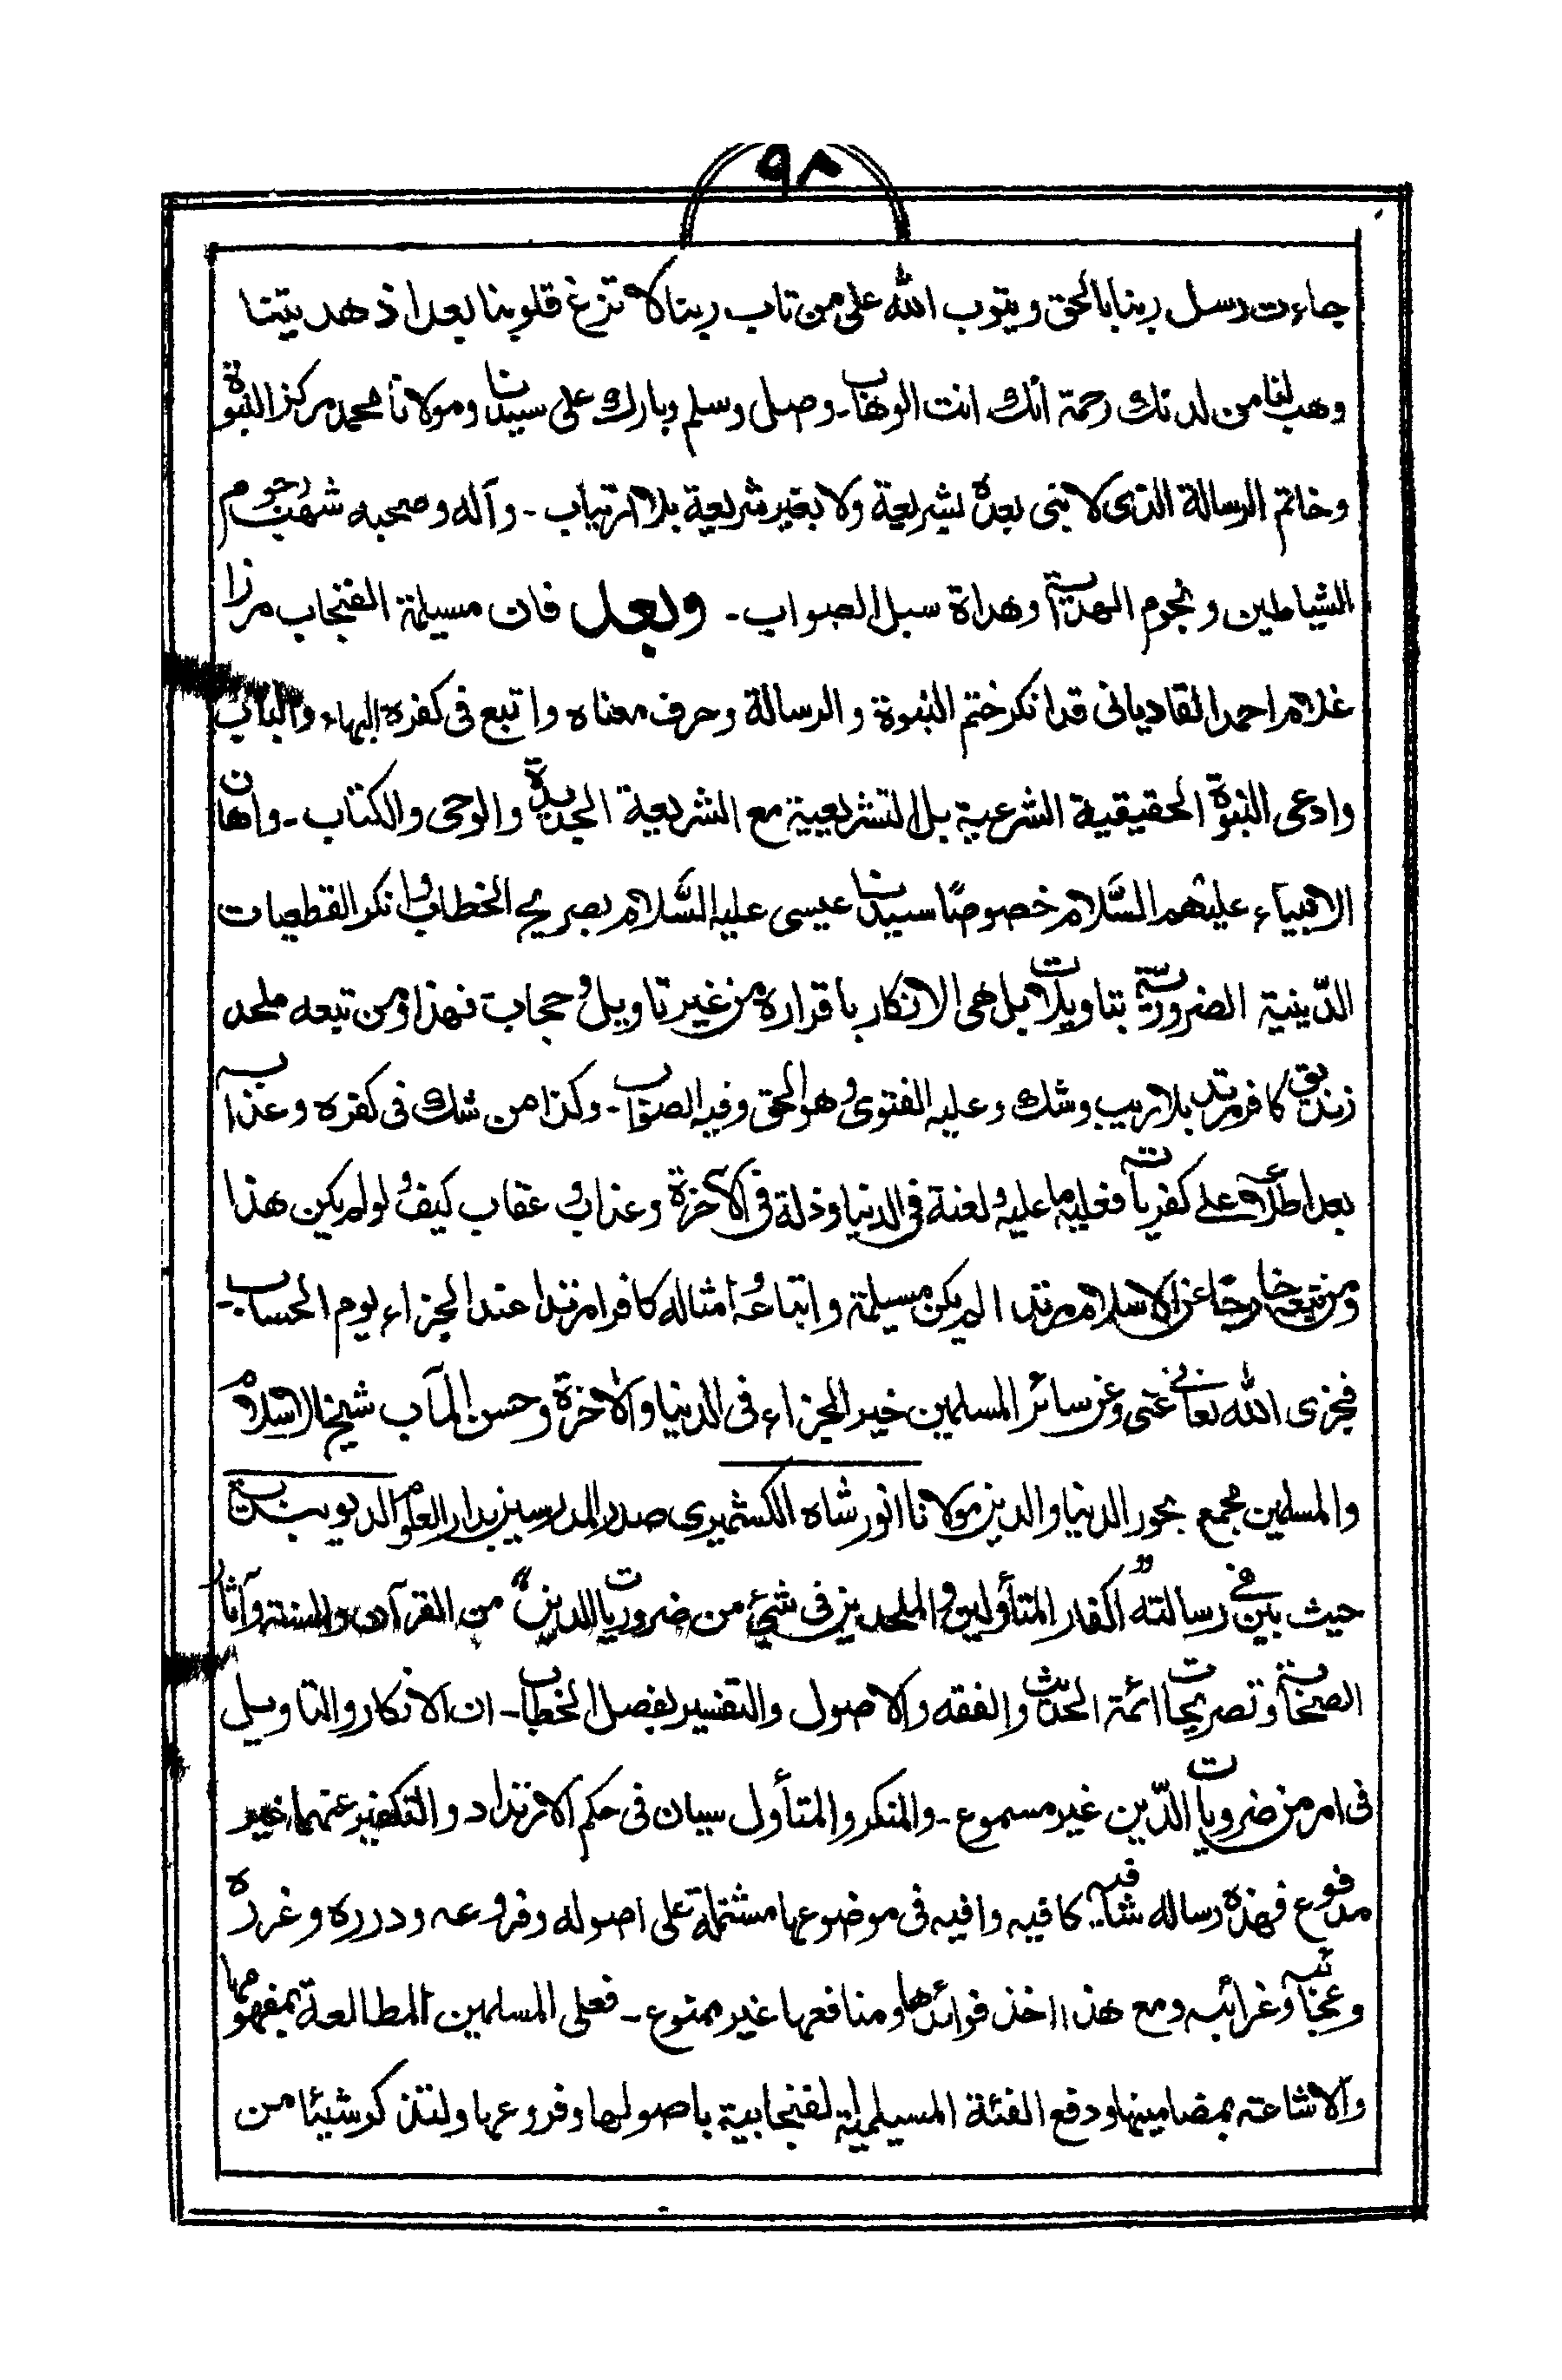 ٩٨
جاءت رسل ربنا بالحق ويتوب الله على من تاب ربنا لا تزغ قلوبنا بعد اذ هديتنا
وهب لنا من لدنك رحمة انك انت الوهاب - وصل وسلم وبارك على سيدنا ومولانا محمد مركز النبوة
وخاتم الرسالة الذى لا نبى بعده بشريعة ولا بغير شريعة بلا ارتياب - وآله وصحبه شهب رجوم
الشياطين ونجوم الهداية وهداة سبل الصواب - وبعد فان مسيلمة الفنجاب مرزا
غلام احمد القاديانى قد انكر ختم النبوة والرسالة وحرف معناه واتبع فى كفره البهاء والباب
وادعى النبوة الحقيقية الشرعية بل التشريعية مع الشريعة الجديدة والوحى والكتاب - واهان
الانبياء عليهم السَّلام خصوصًا سيدنا عيسى عليه السَّلام بصريح الخطاب وانكر القطعيات
الدّينية الضرورية بتاويلات بل هى الانكار باقراره من غير تاويل وحجاب فهذا ومن تبعه ملحد
زنديق كافر مرتد بلا ريب وشك وعليه الفتوى وهو الحق وفيه الصواب - وكذا من شك فى كفره وعذابه
بعد اطلاعه على كفرياته فعليه ما عليه لعنة فى الدنيا وذلة فى الآخرة وعذاب وعقاب كيف لو لم يكن هذا
ومن تبعه خارجًا عن الاسلام مرتدا لم يكن مسيلمة واتباعه وامثاله كافرا مرتدا عند الجزاء يوم الحساب -
فجزى الله تعالى عنى وعن سائر المسلمين خير الجزاء فى الدنيا والآخرة وحسن المآب شيخ الاسلام
والمسلمين مجمع بحور الدنيا والدين مولانا انور شاه الكشميرى صدر المدرسين بدار العلوم الديوبندية
حيث بين فى رسالته اكفار المتأولين والملحدين فى شئ من ضروريات الدين من القرآن والسنة وآثار
الصحابة وتصريحات ائمة الحديث والفقه والاصول والتفسير بفصل الخطاب - ان الانكار والتاويل
فى امر من ضروريات الدّين غير مسموع - والمنكر والمتأول سيان فى حكم الارتداد والتكفير عنهما غير
مدفوع فهذه رساله شافيه كافيه وافيه فى موضوعها مشتملة على اصوله وفروعه ودرره وغرره
وعجائبه وغرائبه ومع هذا اخذ فوائدها ومنافعها غير ممنوع - فعلى المسلمين المطالعة بمفهومها
والاشاعة بمضامينها ودفع الفئة المسيلمية الفنجابية باصولها وفروعها ولنذكر شيئا من